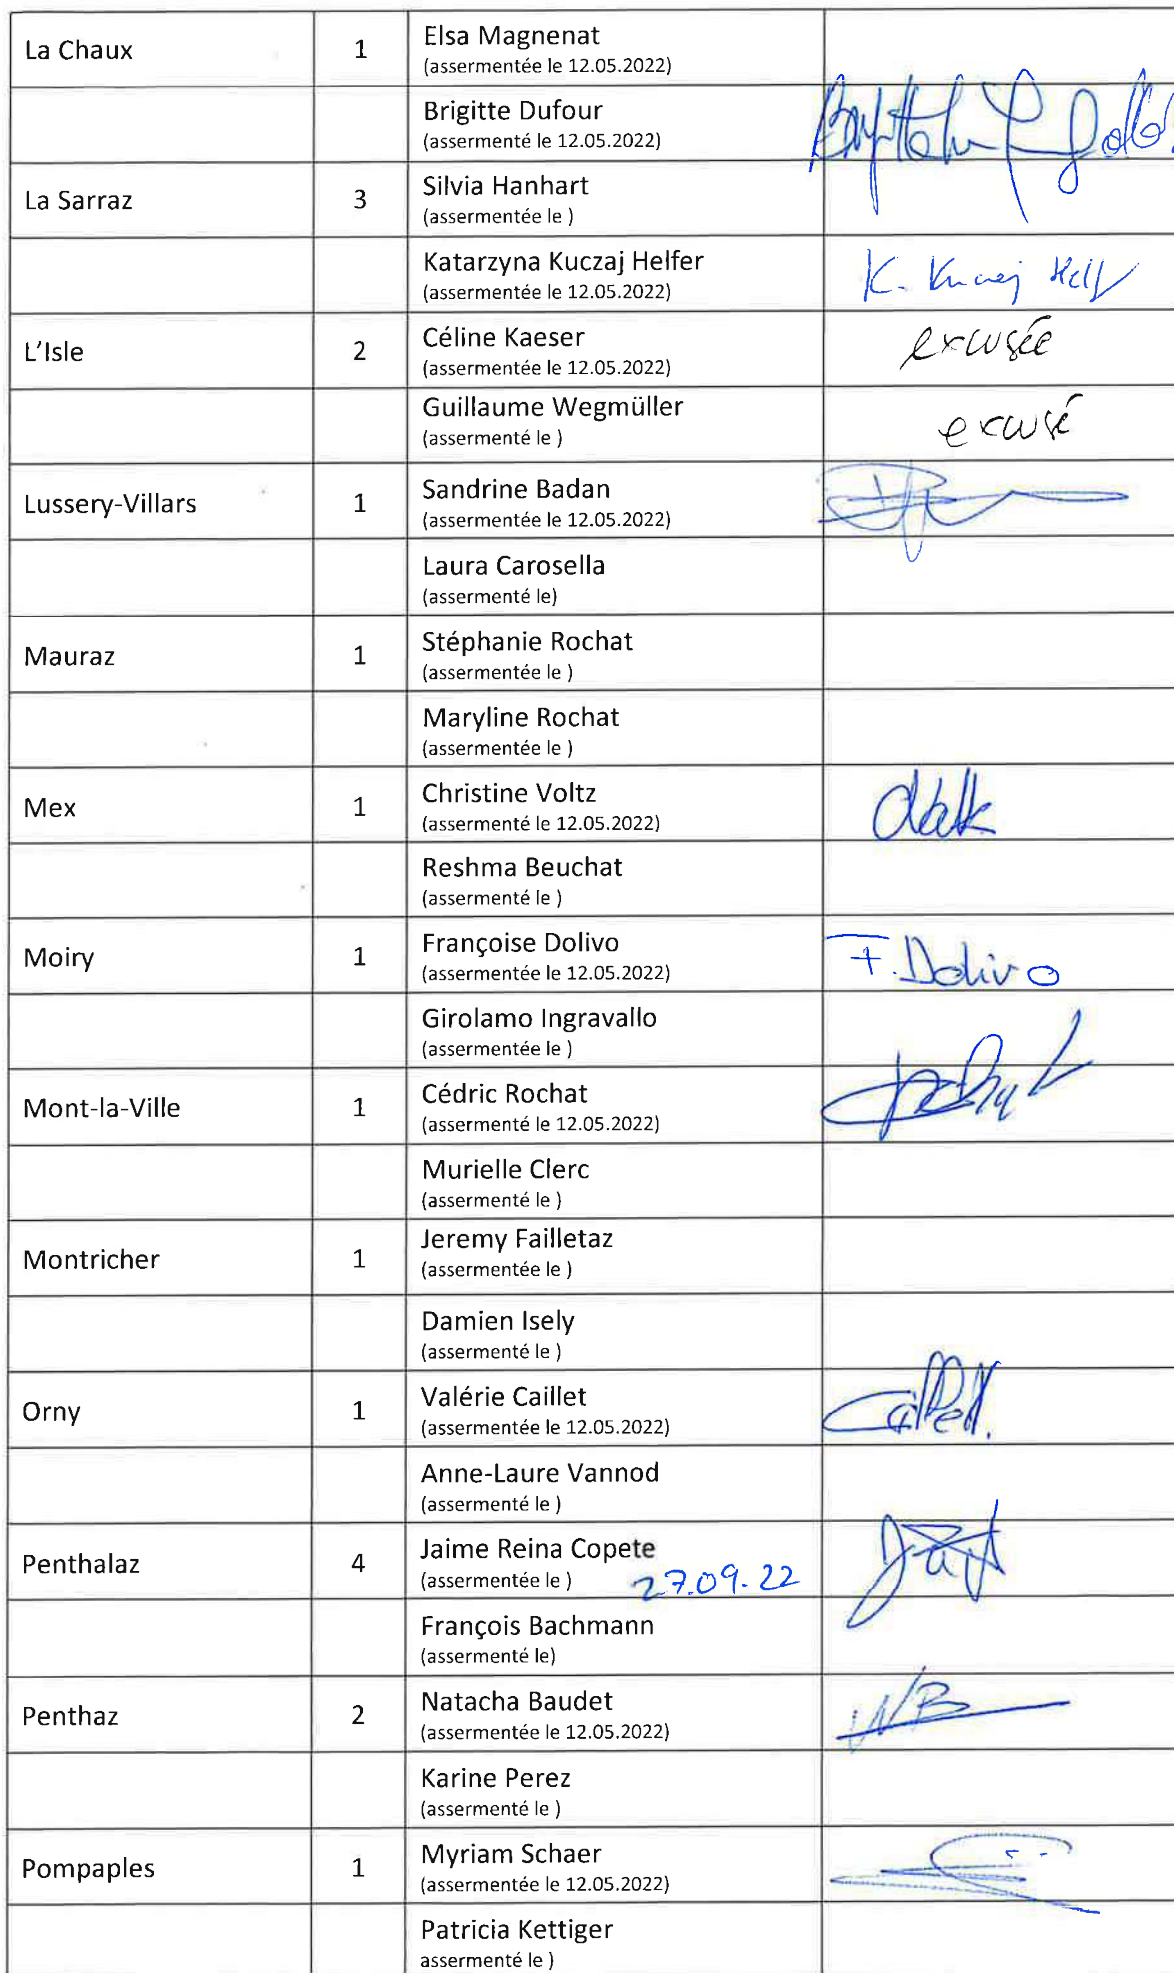 La Chaux 1 Elsa Magnenat
(assermentée le 12.05.2022)
Brigitte Dufour
(assermenté le 12.05.2022)
La Sarraz 3 Silvia Hanhart
(assermentée le )
Katarzyna Kuczaj Helfer
(assermentée le 12.05.2022)
K. Kuczaj Helf
L'Isle 2 Céline Kaeser excusée
(assermentée le 12.05.2022)
Guillaume Wegmüller
(assermenté le ) excusé
Lussery-Villars 1 Sandrine Badan
(assermentée le 12.05.2022)
Laura Carosella
(assermenté le)
Mauraz 1 Stéphanie Rochat
(assermentée le )
Maryline Rochat
(assermentée le )
Mex 1 Christine Voltz
(assermenté le 12.05.2022)
Reshma Beuchat
(assermenté le )
Moiry 1 Françoise Dolivo F. Dolivo
(assermentée le 12.05.2022)
Girolamo Ingravallo
(assermentée le )
Mont-la-Ville 1 Cédric Rochat
(assermenté le 12.05.2022)
Murielle Clerc
(assermenté le )
Montricher 1 Jeremy Failletaz
(assermentée le )
Damien Isely
(assermenté le )
Orny 1 Valérie Caillet
(assermentée le 12.05.2022)
Anne-Laure Vannod
(assermenté le )
Penthalaz 4 Jaime Reina Copete
(assermentée le ) 27.09.22
François Bachmann
(assermenté le)
Penthaz 2 Natacha Baudet NB
(assermentée le 12.05.2022)
Karine Perez
(assermenté le )
Pompaples 1 Myriam Schaer
(assermentée le 12.05.2022)
Patricia Kettiger
assermenté le )